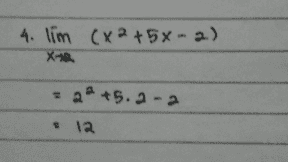 4. lim (x²+5x-2)
x→2
= 2²+5.2-2
= 12